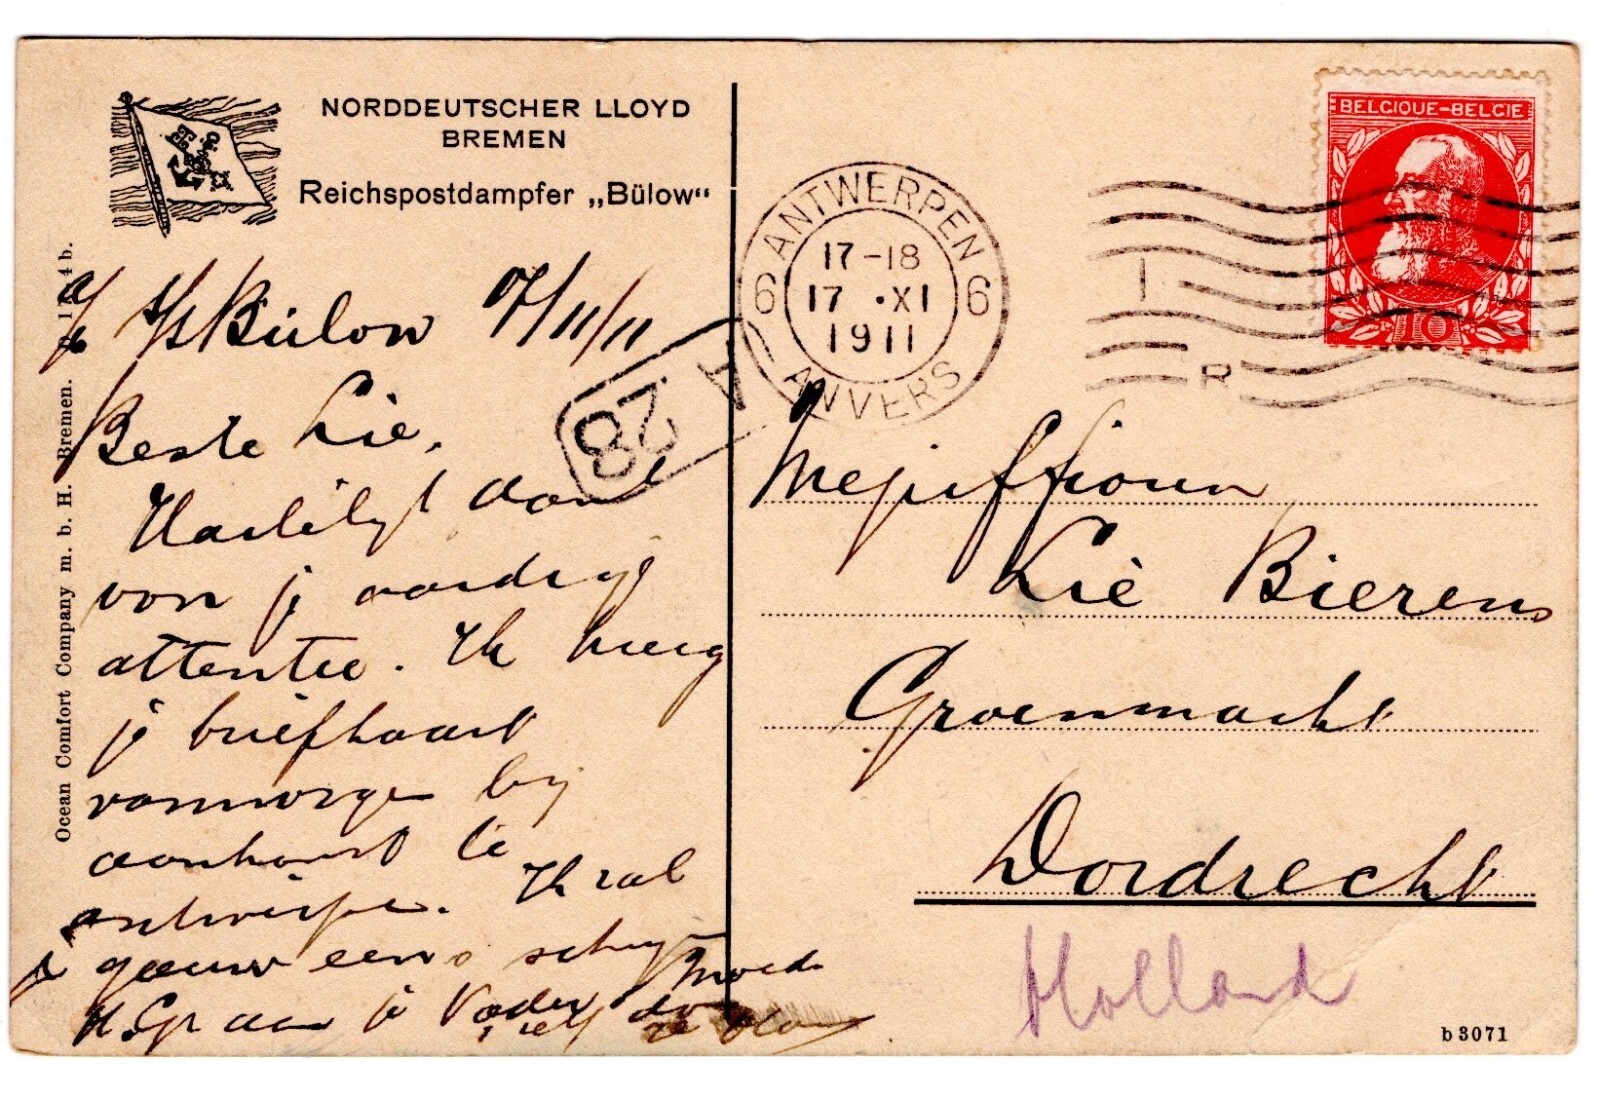 NORDDEUTSCHER LLOYD
BREMEN
Reichspostdampfer „Bülow“
a/b S/S Bülow 17/11/11
Beste Lie,
Hartelijk dank
von je aardige
attentie. Ik kreeg
je briefkaart
vanmorge bij
aankomst te
Antwerpe. Ik zal
je gauw eens schrijve
H. Gr. aan je Vader, Moeder
Ocean Comfort Company m. b. H. Bremen.
A 28
ANTWERPEN
6 6
17-18
17 •XI
1911
ANVERS
I
R
BELGIQUE-BELGIE
10
Mejuffrouw
Liè Bierens
Groenmarkt
Dordrecht
Holland
b 3071